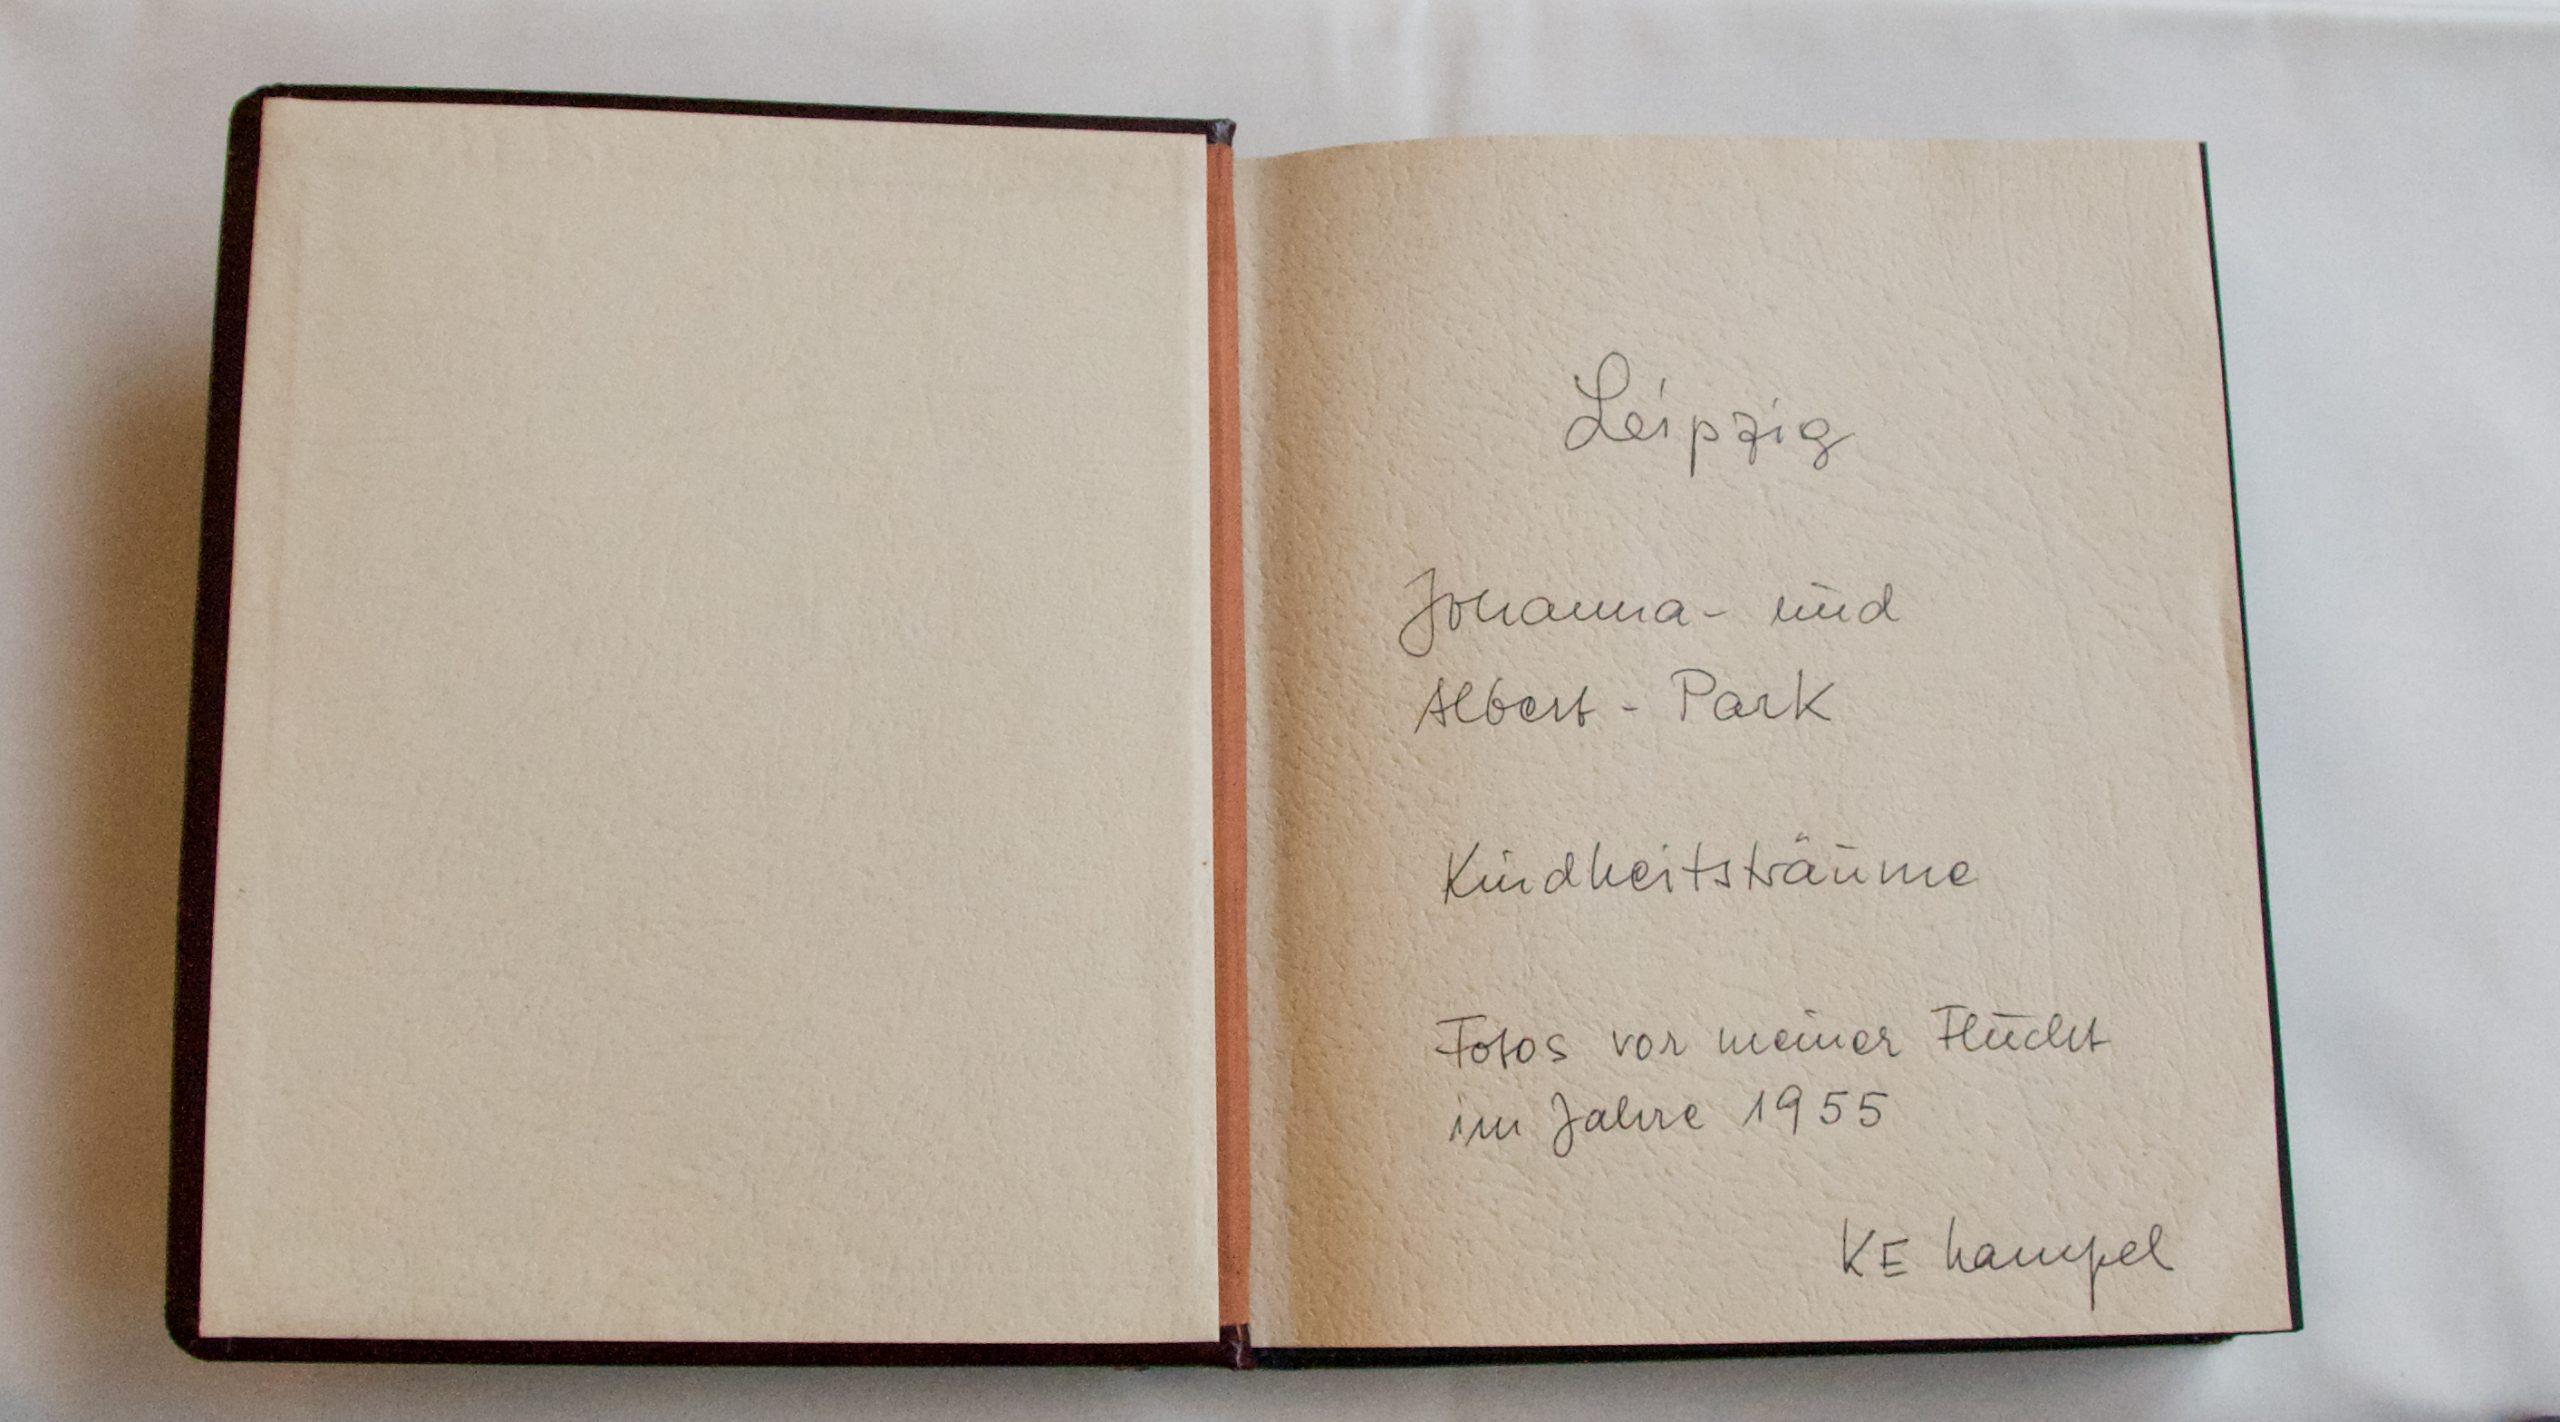 Leipzig
Johanna- und
Albert - Park
Kindheitsträume
Fotos vor meiner Flucht
im Jahre 1955
KE hampel